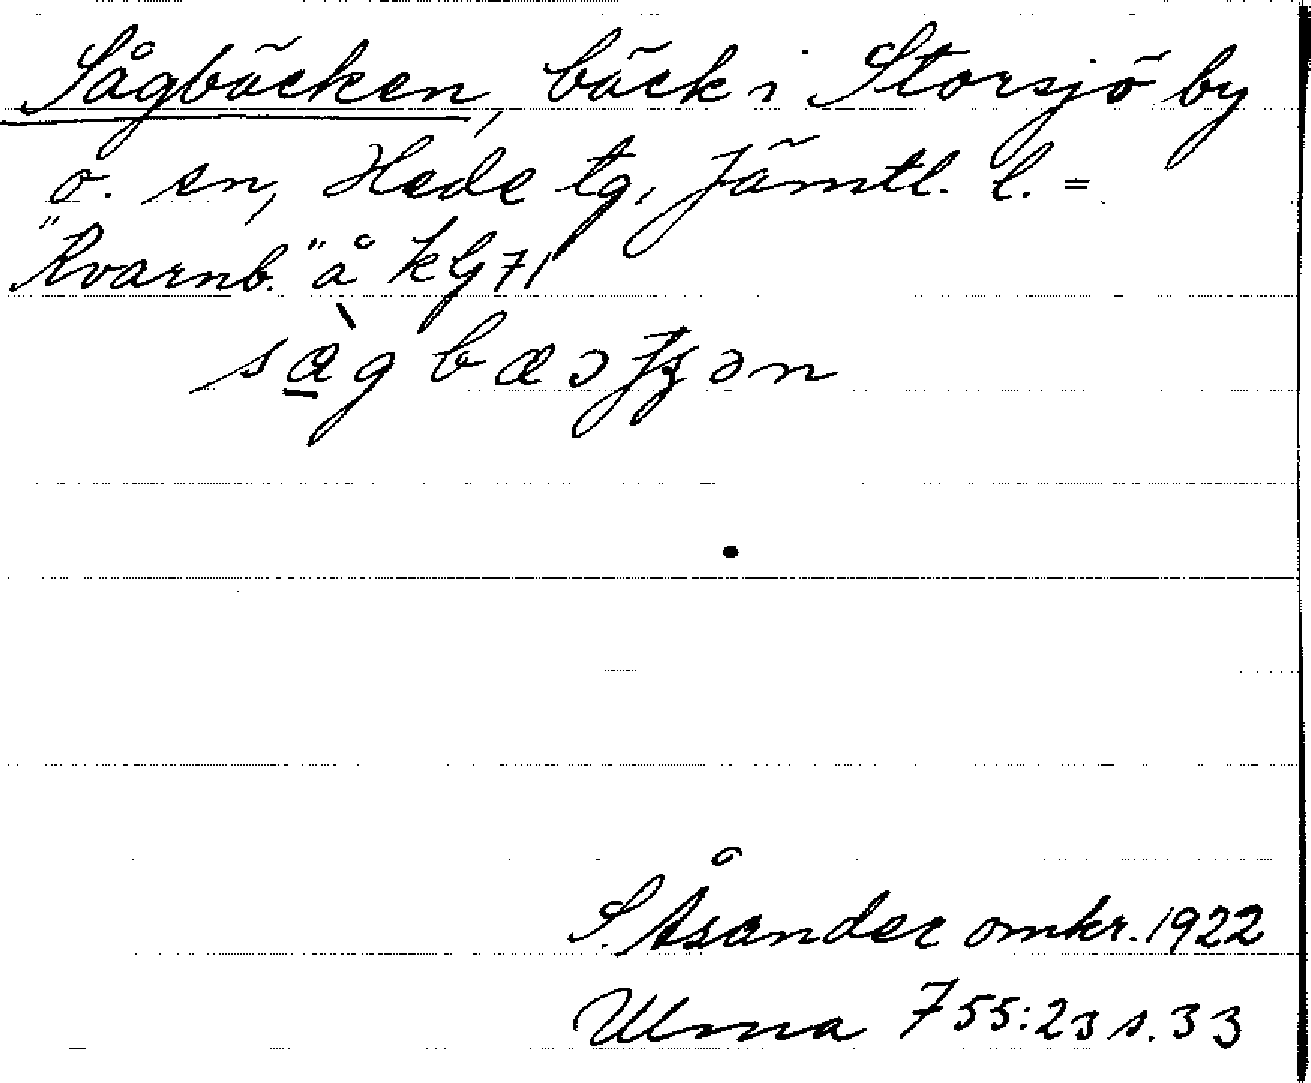 Sågbäcken, bäck i Storsjö by
o. sn, Hede tg, Jämtl. l. =
"Kvarnb." å kG71
sæ̀gbæɔʃʒən
S. Åsander omkr. 1922
Ulma 755:23 s. 33